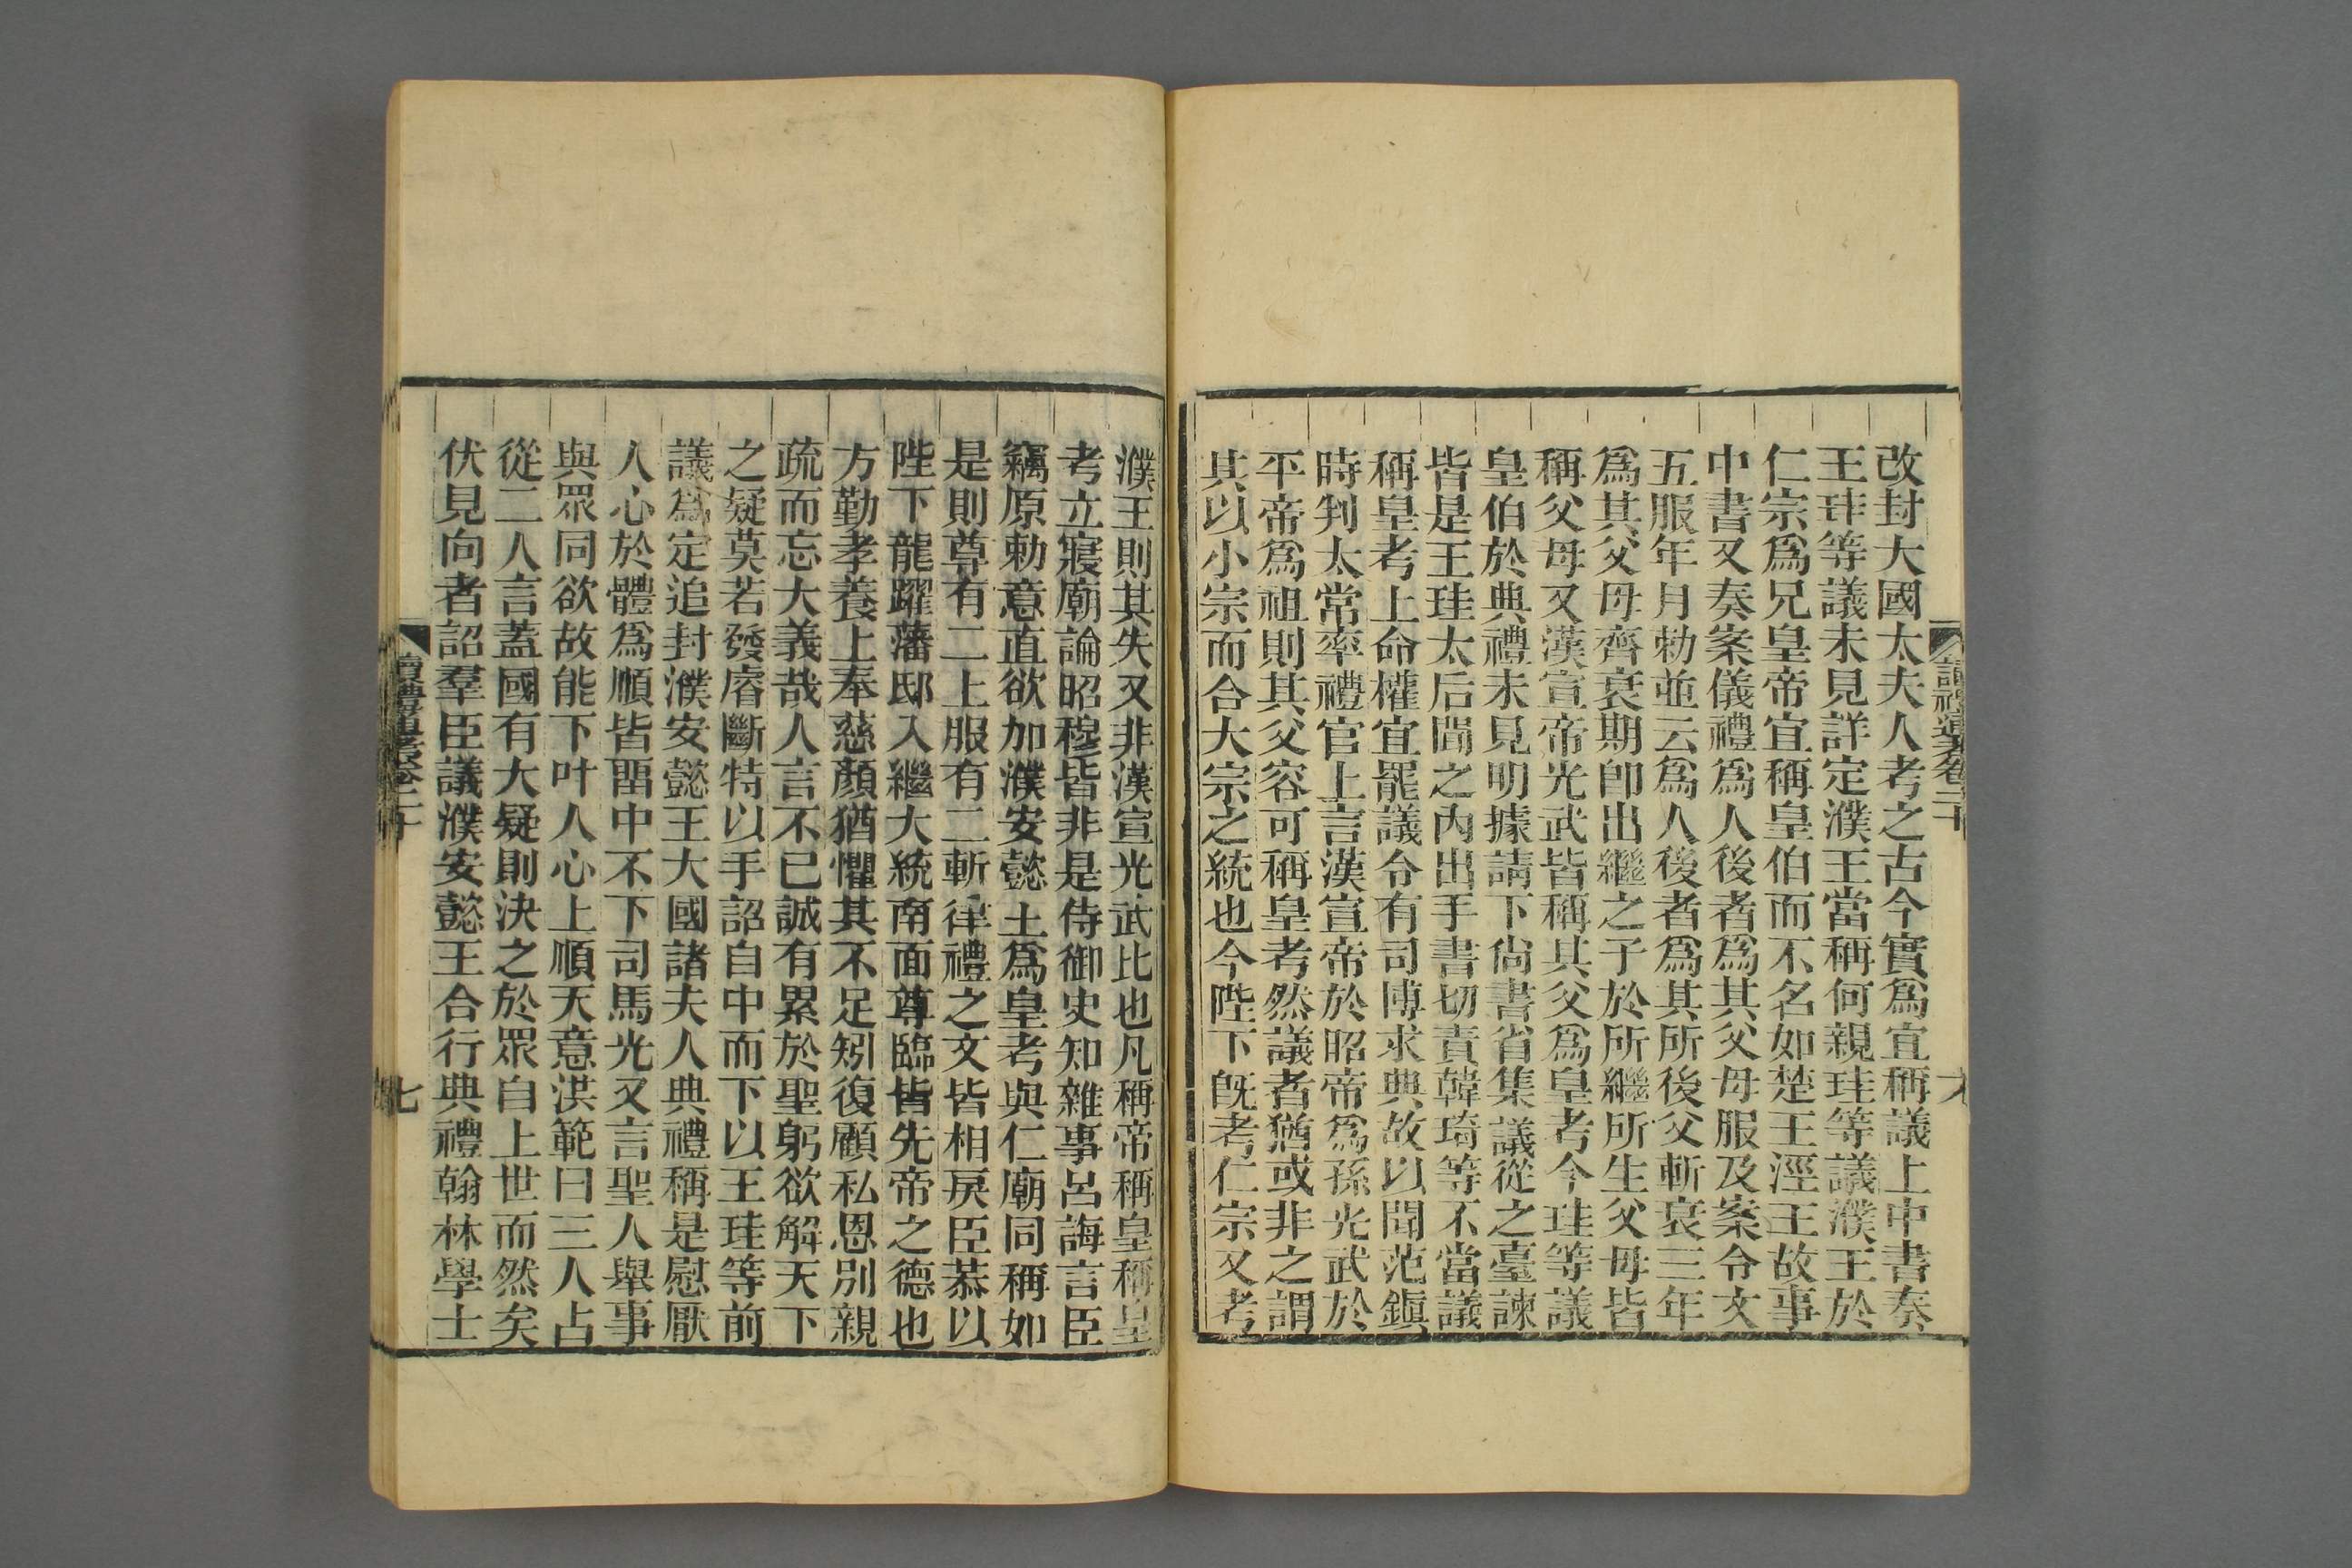 改封大國太夫人考之古今實爲宜稱議上中書奏
王珪等議未見詳定濮王當稱何親珪等議濮王於
仁宗爲兄皇帝宜稱皇伯而不名如楚王涇王故事
中書又奏案儀禮爲人後者爲其父母服及案令文
五服年月勅並云爲人後者爲其所後父斬衰三年
爲其父母齊衰期卽出繼之子於所繼所生父母皆
稱父母又漢宣帝光武皆稱其父爲皇考今珪等議
皇伯於典禮未見明據請下尙書省集議從之臺諫
皆是王珪太后聞之內出手書切責韓琦等不當議
稱皇考上命權宜罷議令有司博求典故以聞范鎭
時判太常率禮官上言漢宣帝於昭帝爲孫光武於
平帝爲祖則其父容可稱皇考然議者猶或非之謂
其以小宗而合大宗之統也今陛下旣考仁宗又考
讀禮通考卷二十
濮王則其失又非漢宣光武比也凡稱帝稱皇稱皇
考立寢廟論昭穆皆非是侍御史知雜事呂誨言臣
竊原勅意直欲加濮安懿王爲皇考與仁廟同稱如
是則尊有二上服有二斬律禮之文皆相戾臣恭以
陛下龍躍藩邸入繼大統南面尊臨皆先帝之德也
方勤孝養上奉慈顏猶懼其不足矧復顧私恩別親
疏而忘大義哉人言不已誠有累於聖躬欲解天下
之疑莫若發睿斷特以手詔自中而下以王珪等前
議爲定追封濮安懿王大國諸夫人典禮稱是慰厭
人心於體爲順皆畱中不下司馬光又言聖人舉事
與眾同欲故能下叶人心上順天意洪範曰三人占
從二人言蓋國有大疑則決之於眾自上世而然矣
伏見向者詔羣臣議濮安懿王合行典禮翰林學士
讀禮通考卷二十
七